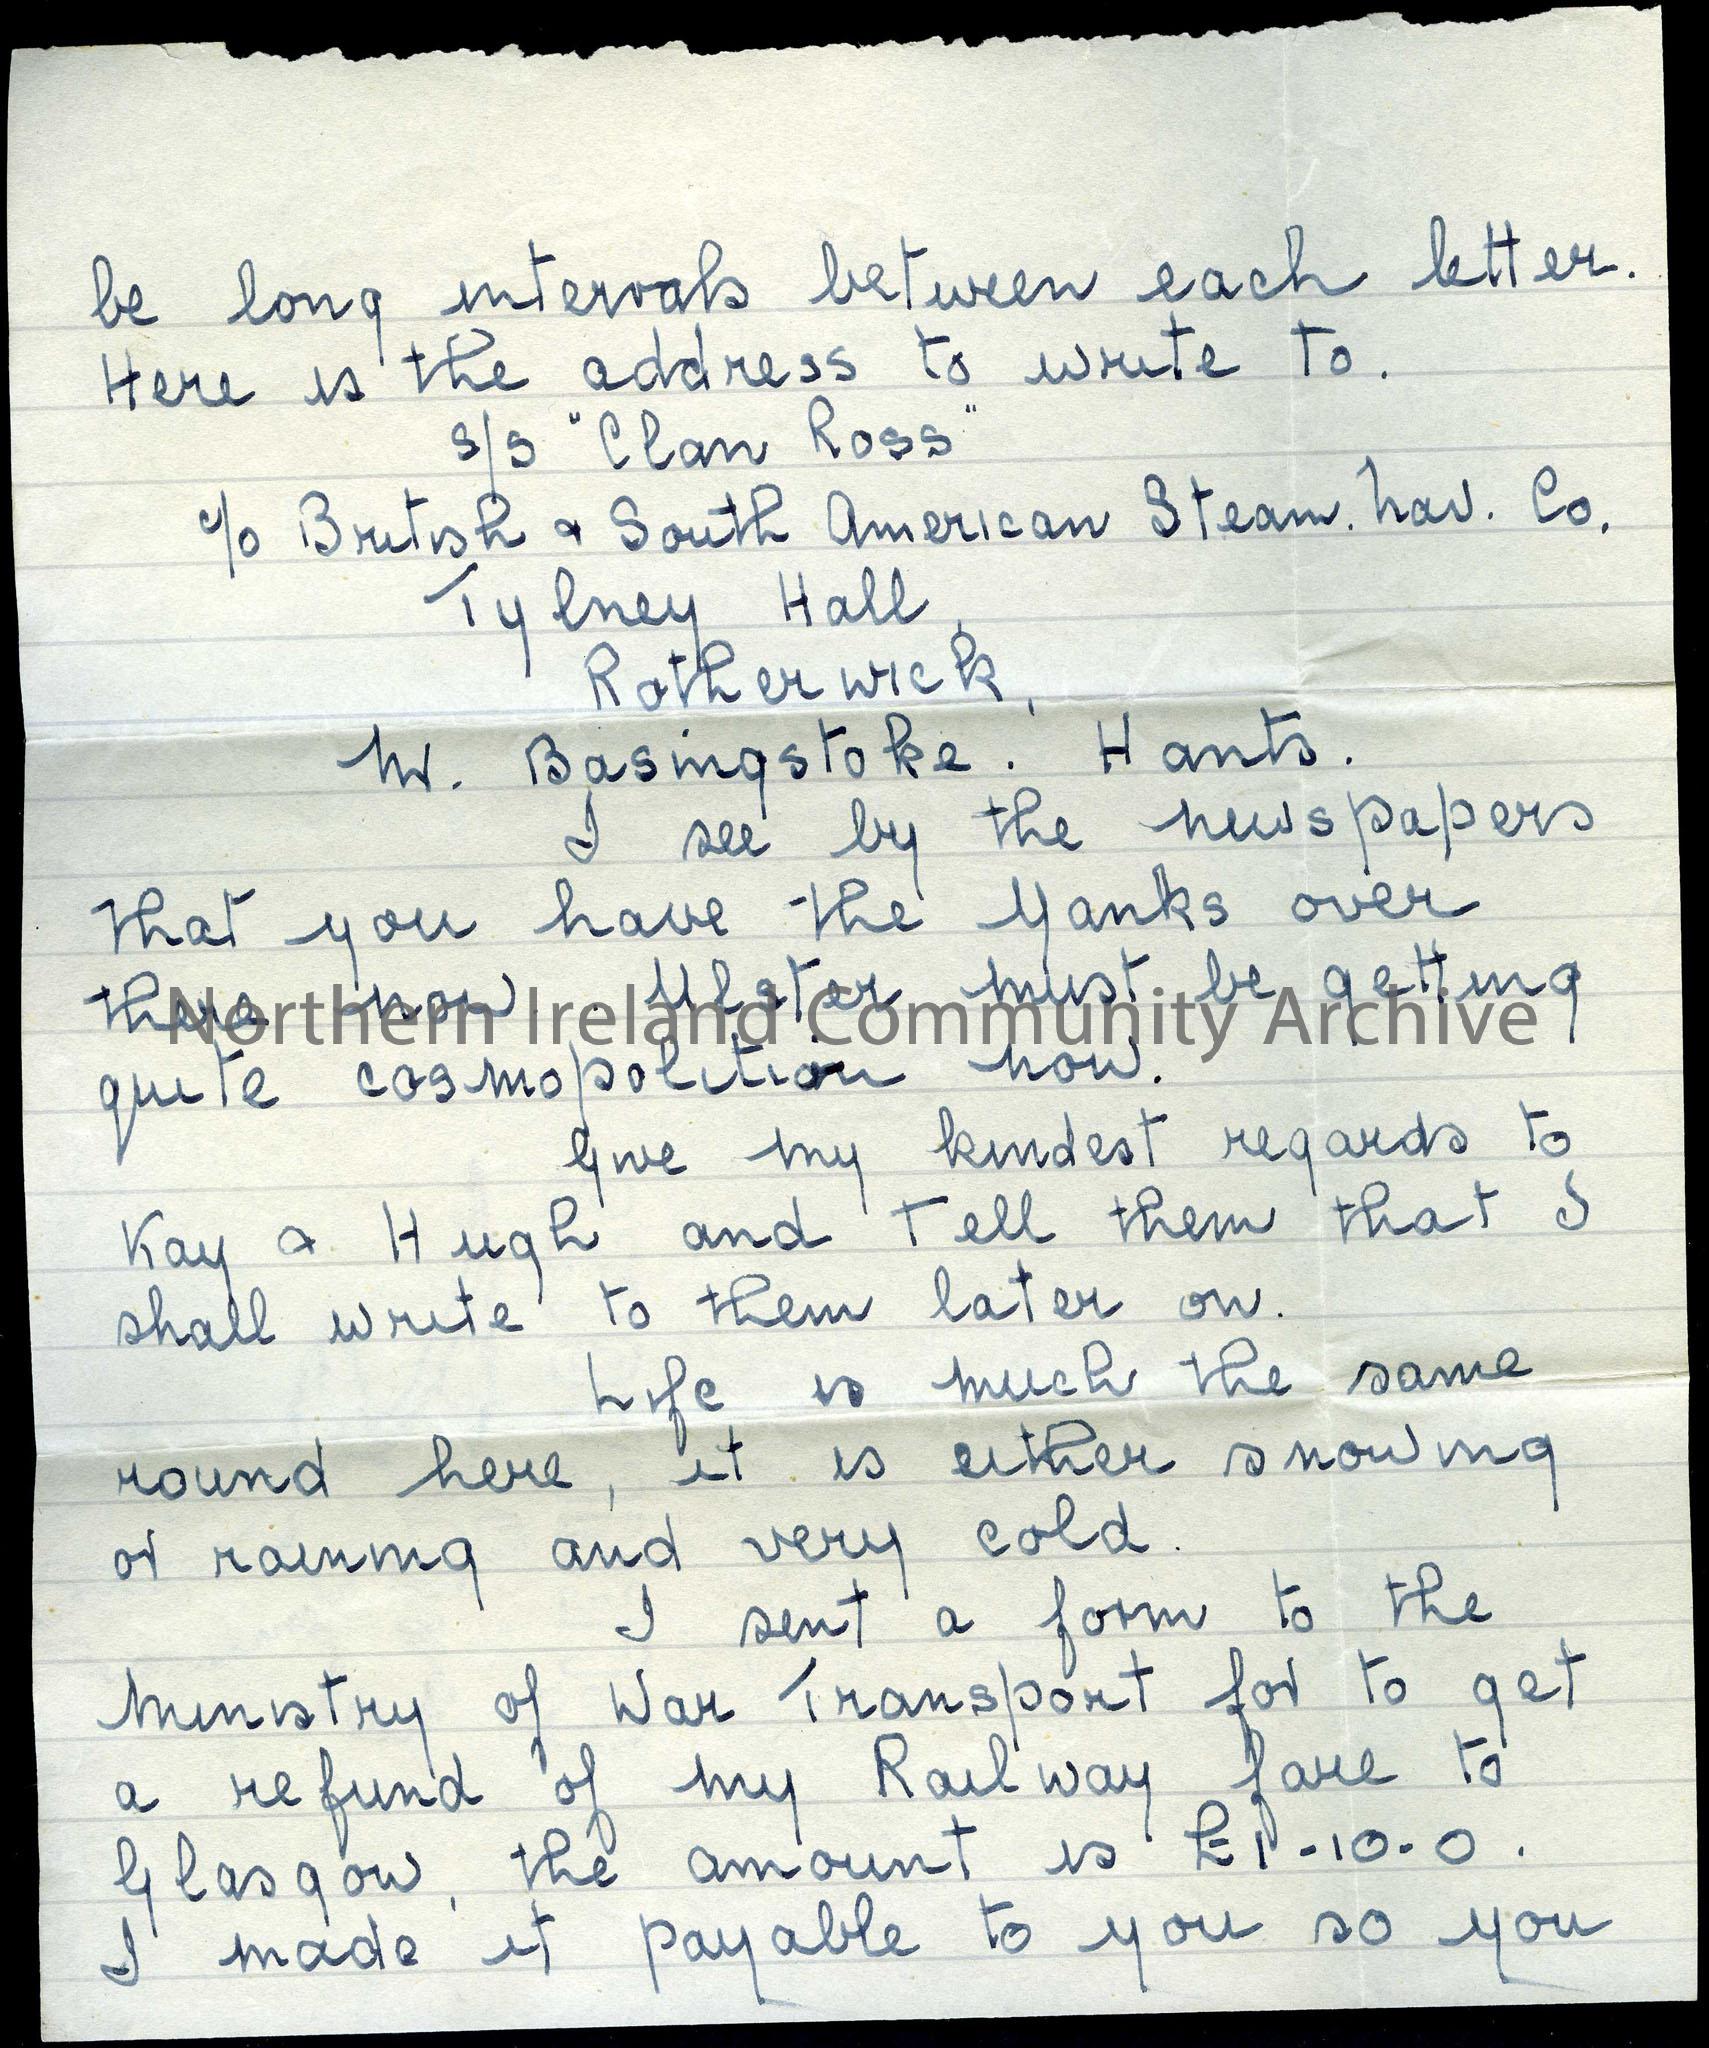 be long intervals between each letter.
Here is the address to write to.
s/s "Clan Ross"
c/o British & South American Steam. Nav. Co.
Tylney Hall,
Rotherwick,
Nr. Basingstoke. Hants.
I see by the newspapers
that you have the Yanks over
there now. Ulster must be getting
Northern Ireland Community Archive
quite cosmopolitian now.
Give my kindest regards to
Kay & Hugh and tell them that I
shall write to them later on.
Life is much the same
round here, it is either snowing
or raining and very cold.
I sent a form to the
Ministry of War Transport for to get
a refund of my Railway fare to
Glasgow, the amount is £1-10-0.
I made it payable to you so you